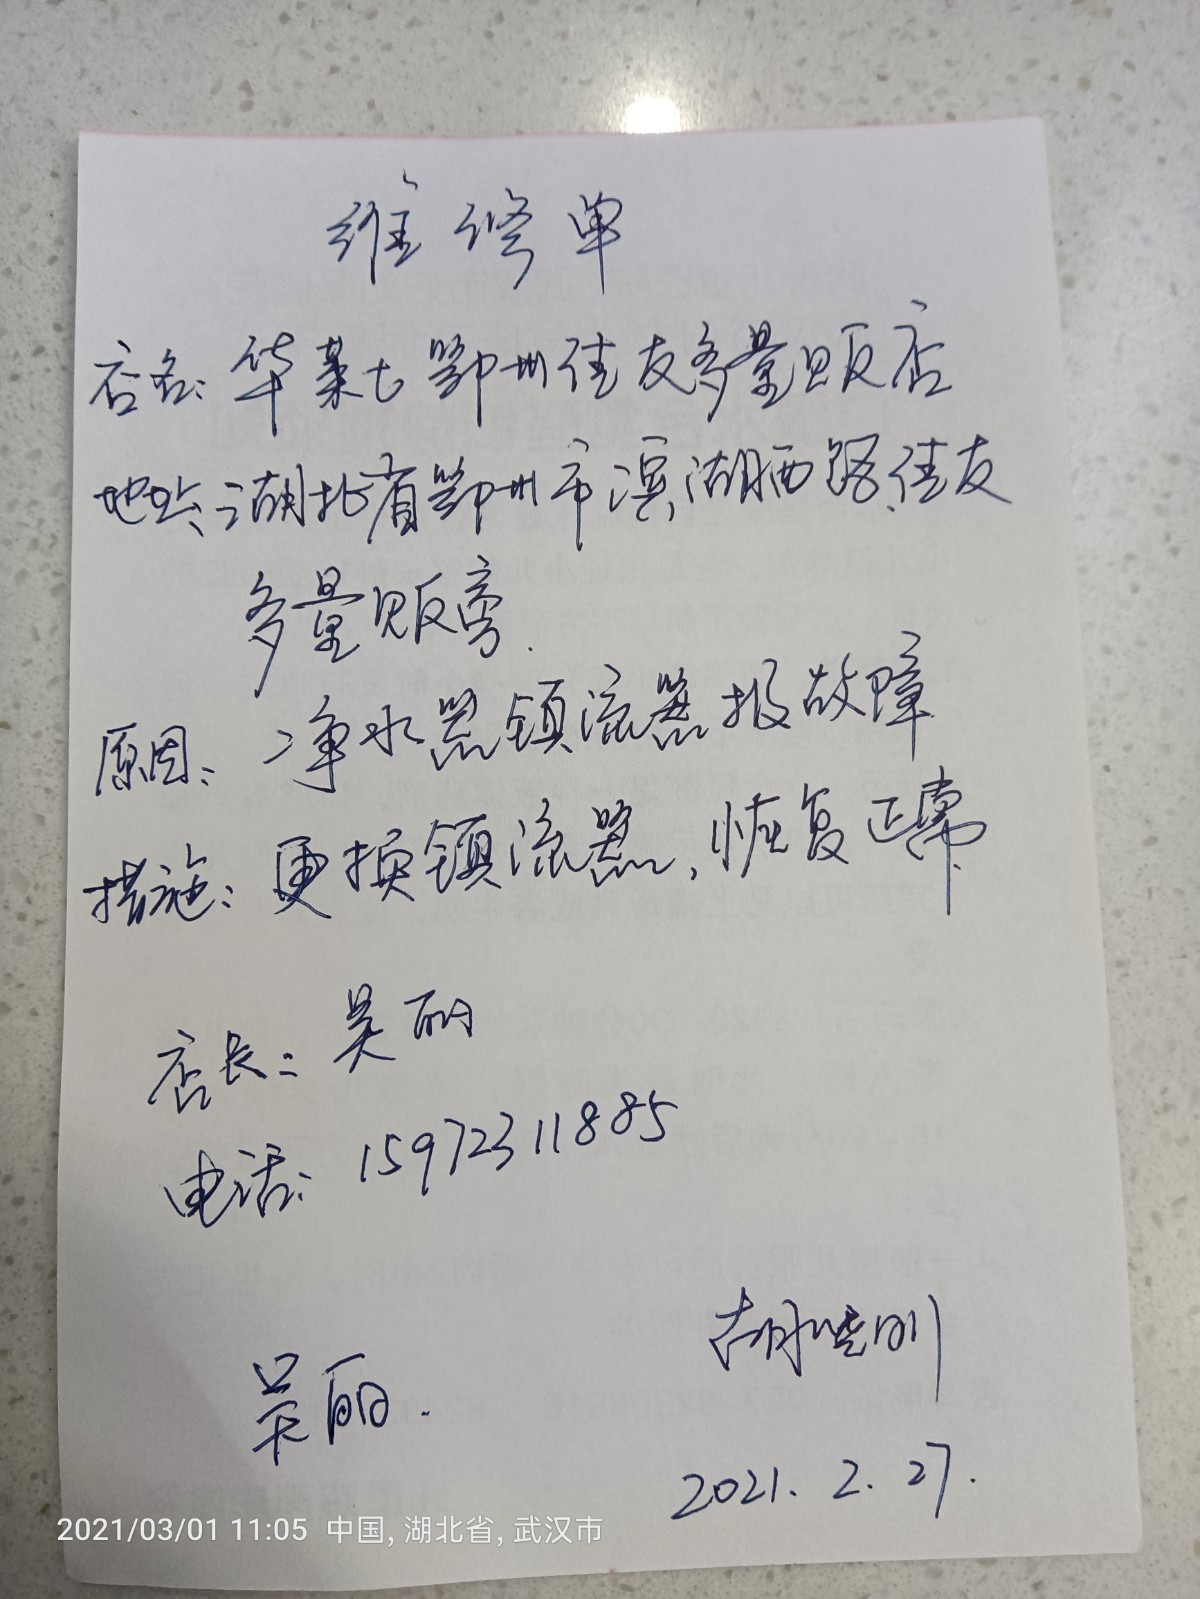 维修单
店名:华莱士鄂州佳友多量贩店
地址:湖北省鄂州市滨湖西路佳友
多量贩旁.
原因:净水器镇流器报故障
措施:更换镇流器,恢复正常
店长:吴丽
电话:15972311885
胡
吴丽.
2021.2.27.
2021/03/01 11:05 中国, 湖北省, 武汉市